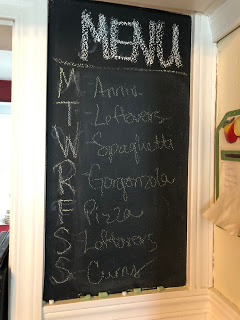 MENU
M - Anniv.
T - Leftovers
W - Spaghetti
R - Gorgonzola
F - Pizza
S - Leftovers
S - Curry